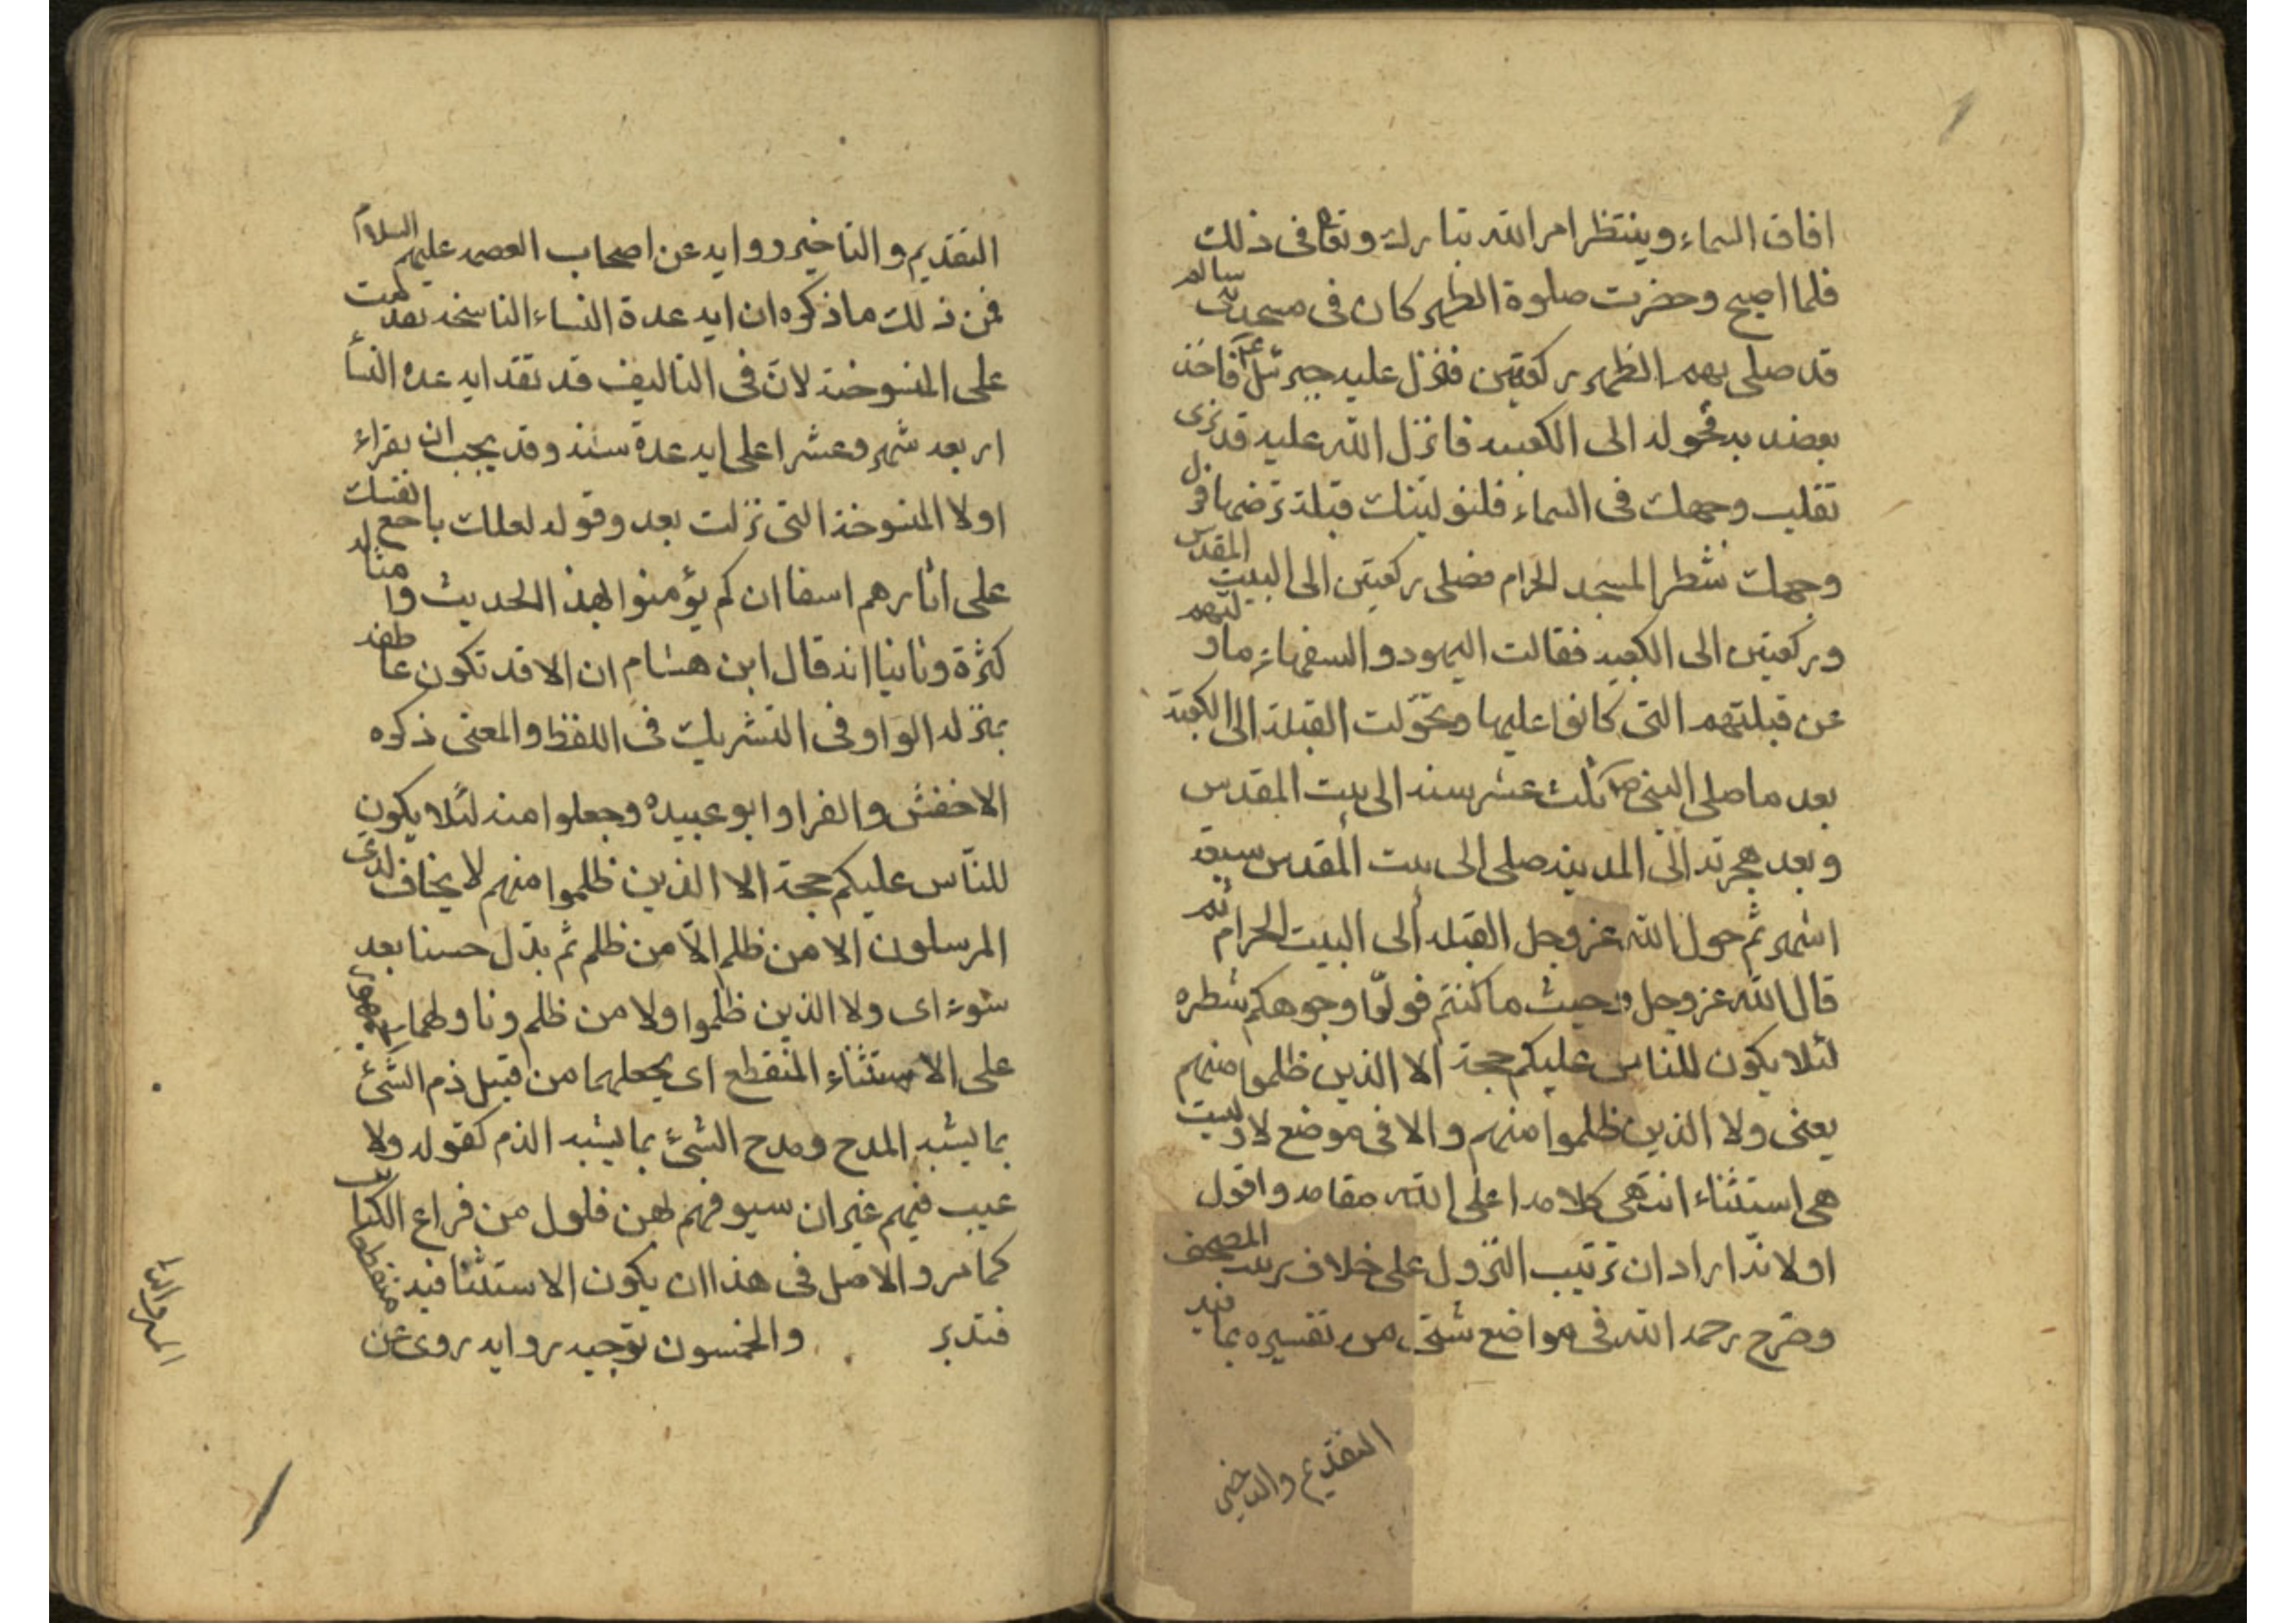 افاق السماء وينتظر امر الله تبارك وتعا فى ذلك
فلما اصبح وحضرت صلوة الظهر كان فى مسجد بنى سالم
قد صلى بهم الظهر ركعتين فنزل عليه جبرئيل ع فاخذ
بعضد به فحوله الى الكعبه فانزل الله عليه قد نرى
تقلب وجهك فى السماء فلنولينك قبلة ترضها فول
وجهك شطر المسجد الحرام فصلى ركعتين الى البيت المقدس
وركعتين الى الكعبه فقالت اليهود والسفهاء ما ولّيهم
عن قبلتهم التى كانوا عليها وتحوّلت القبلة الى الكعبة
بعد ما صلى النبى ص ثلث عشر سنه الى بيت المقدس
وبعد هجرته الى المدينه صلى الى بيت المقدس سبعة
اشهر ثم حول الله عز وجل القبله الى البيت الحرام ثم
قال الله عز وجل وحيث ما كنتم فولّوا وجوهكم شطره
لئلا يكون للناس عليكم حجة الا الذين ظلموا منهم
يعنى ولا الذين ظلموا منهم والا فى موضع لا وليست
هى استثناء انتهى كلامه اعلى الله مقامه واقول
اولا انّه اراد ان ترتيب النزول على خلاف ترتيب المصحف
وصرح رحمه الله فى مواضع شتى من تفسيره بما فيه
التقديم والتاخير
التقديم والتاخير وروايه عن اصحاب العصمه عليهم السلام
فمن ذلك ما ذكره ان ايه عدة النساء الناسخه تقدمت
على المنسوخة لانّ فى التاليف قد تقد ايه عده النسأ
اربعه شهر وعشرا على ايه عدة سنه وقد يجب ان يقراء
اولا المنسوخة التى نزلت بعد وقوله لعلك باخع نفسك
على اثارهم اسفا ان لم يؤمنوا بهذ الحديث وامثاله
كثرة وثانيا انه قال ابن هشام ان الا قد تكون عاطفه
بمنزله الواو فى التشريك فى اللفظ والمعنى ذكره
الاخفش والفرا وابو عبيده وجعلوا منه لئلا يكون
للنّاس عليكم حجة الا الذين ظلموا منهم لا يخاف لدى
المرسلون الا من ظلم الّا من ظلم ثم بدّل حسنا بعد
سوء اى ولا الذين ظلموا ولا من ظلم وتاولهما الجمهور
على الاستثناء المنقطع اى يجعلهما من قبيل ذم الشئ
بما يشبه المدح ومدح الشئ بما يشبه الذم كقوله ولا
عيب فيهم غير ان سيوفهم لهن فلول من قراع الكتائب
كما مر والاصل فى هذا ان يكون الاستثنا فيه منقطعا
فتدبر والخمسون توجيه روايه روى عن